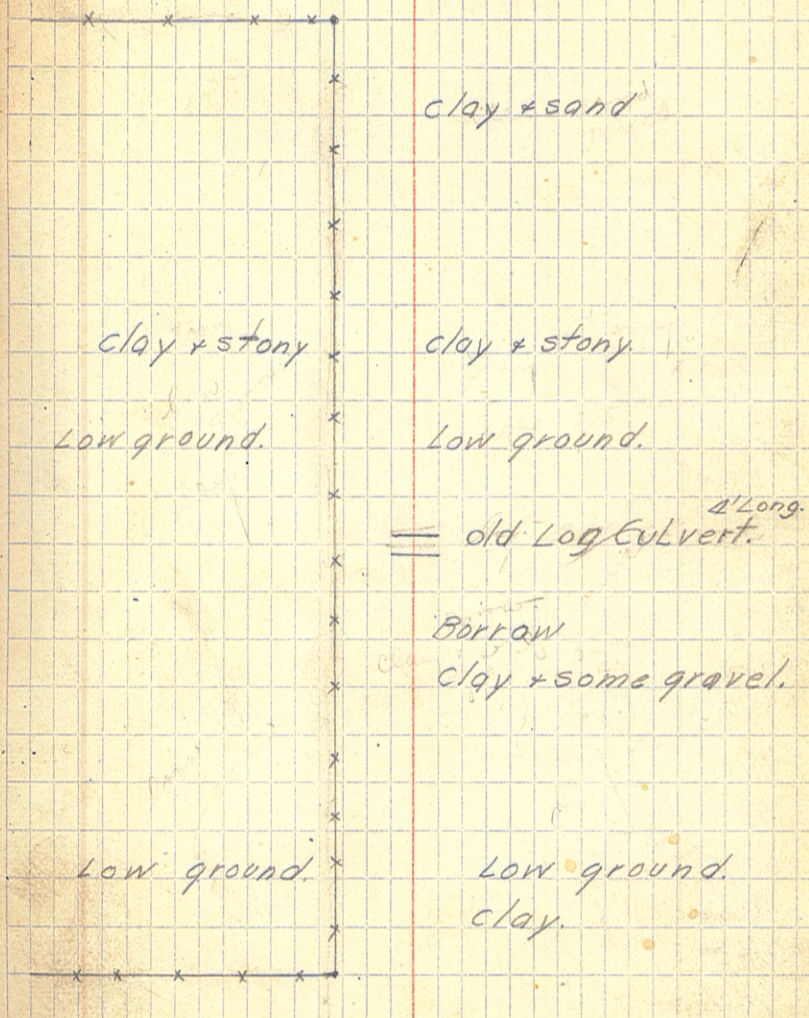 clay & sand
clay & stony
clay & stony.
Low ground.
Low ground.
4' Long.
old Log Culvert.
Borrow
Clay & some gravel.
Low ground.
Low ground.
Clay.